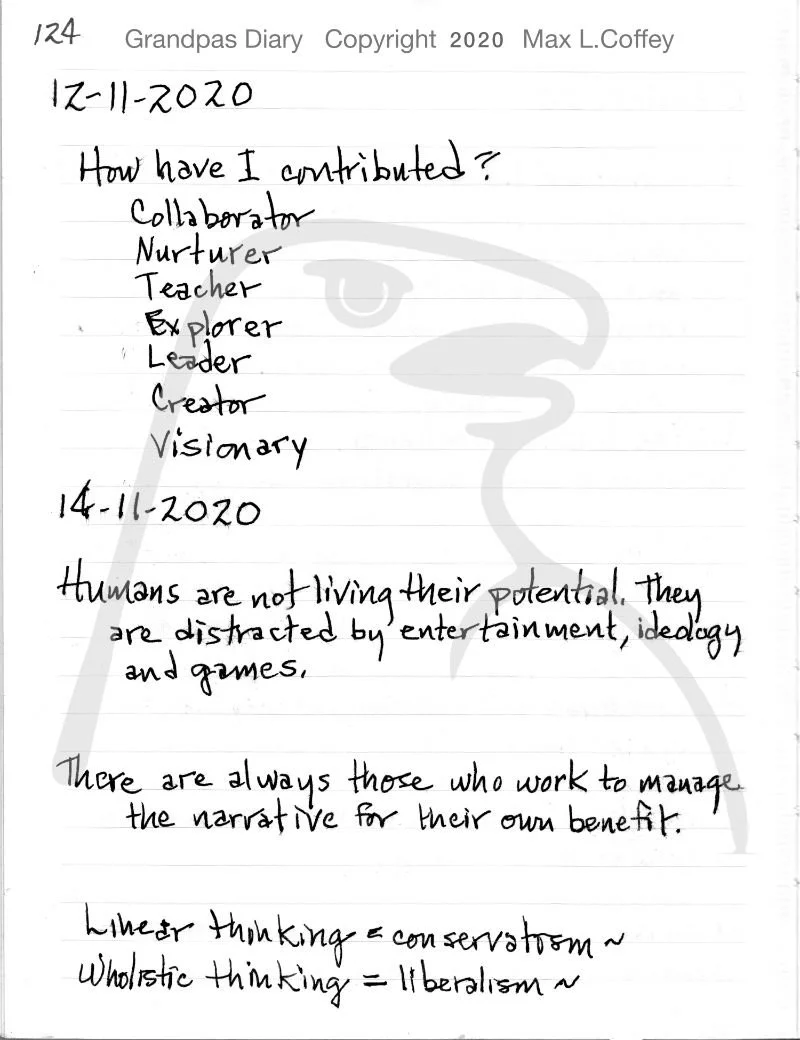 124 Grandpas Diary Copyright 2020 Max L.Coffey
12-11-2020
How have I contributed?
Collaborator
Nurturer
Teacher
Explorer
Leader
Creator
Visionary
14-11-2020
Humans are not living their potential. They
are distracted by entertainment, ideology
and games.
There are always those who work to manage
the narrative for their own benefit.
Linear thinking = conservatism ~
Wholistic thinking = liberalism ~